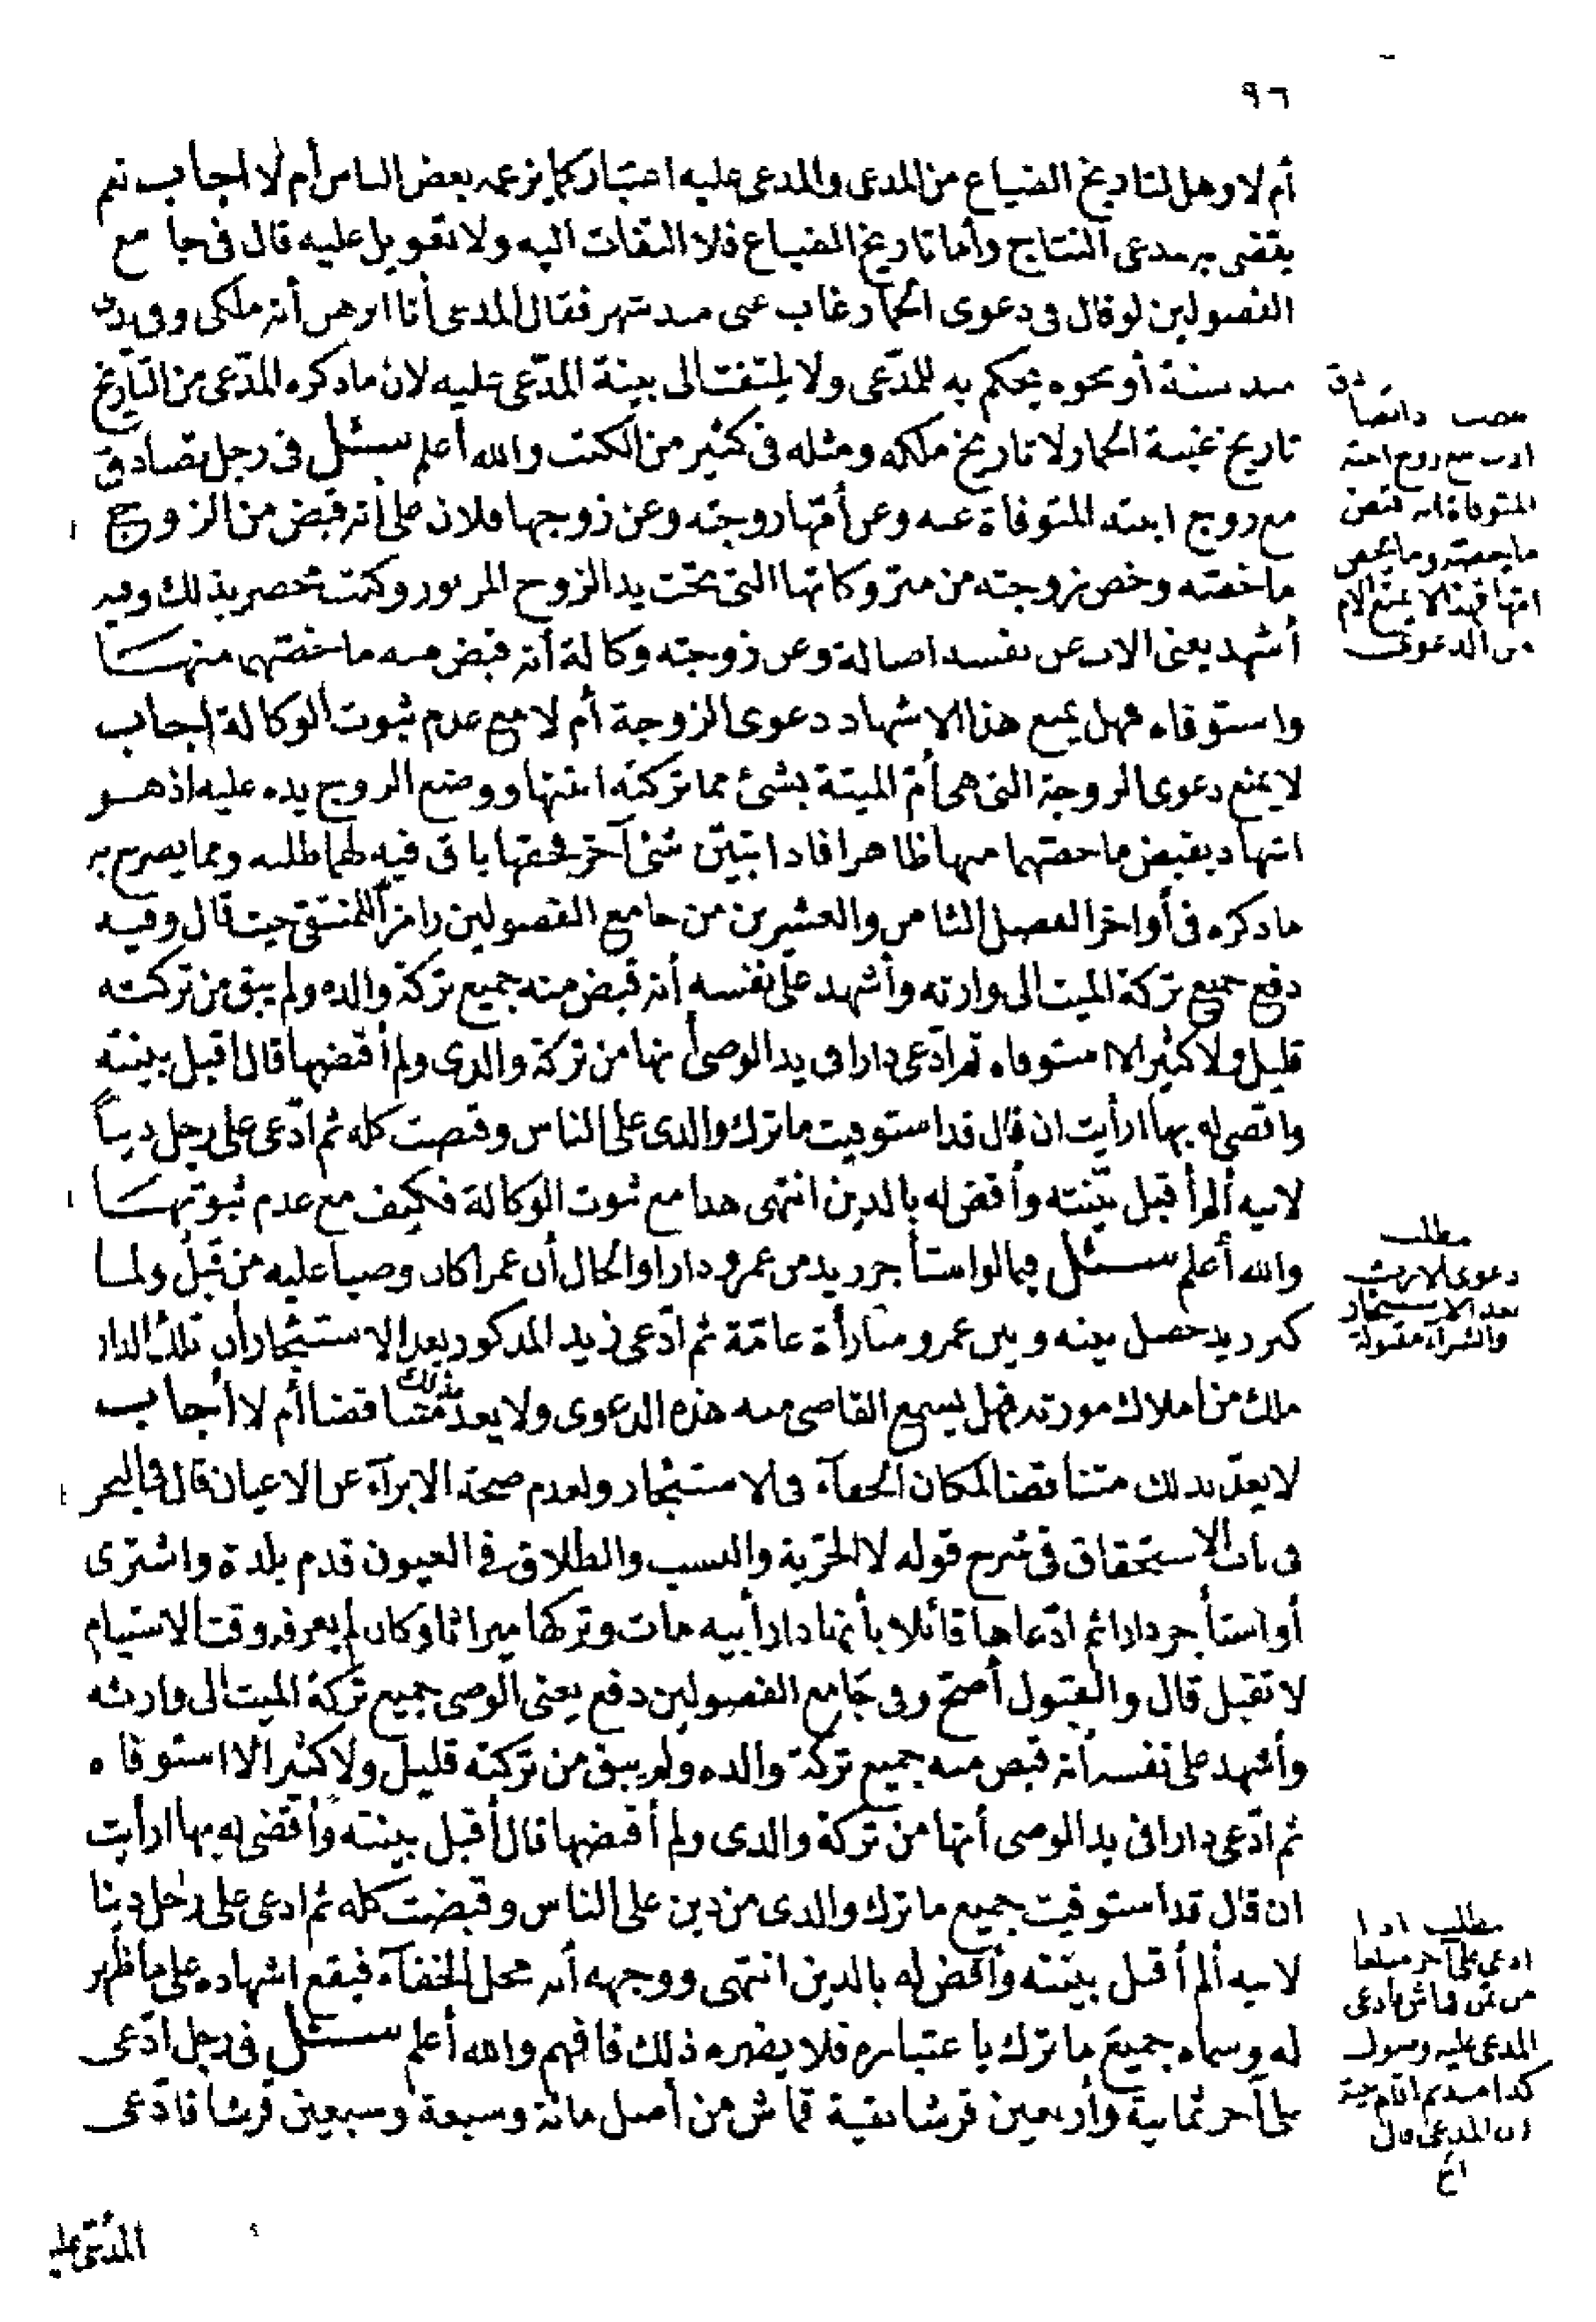 ٩٦
أم لا وهل لتاريخ الضياع من المدعى والمدعى عليه اعتبار كما يزعمه بعض الناس أم لا أجاب نعم
يقضى به لمدعى النتاج وأما تاريخ الضياع فلا التفات اليه ولا تعويل عليه قال فى جامع
الفصولين لو قال فى دعوى الحمار غاب عنى منذ شهر فقال المدعى أنا ابرهن أنه ملكى وفى يدى
منذ سنة أو نحوه يحكم به للمدّعى ولا يلتفت الى بينة المدّعى عليه لان ما ذكره المدّعى من التاريخ
تاريخ غيبة الحمار لا تاريخ ملكه ومثله فى كثير من الكتب والله أعلم سئل فى رجل تصادق
مع زوج ابنته المتوفاة عنه وعن أمّها زوجته وعن زوجها فلان على أنه قبض من الزوج
ما خصته وخص زوجته من متروكاتها التى تحت يد الزوج المزبور وكتب محضر بذلك وفيه
أشهد يعنى الاب عن نفسه اصالة وعن زوجته وكالة أنه قبض منه ما خصّتهما منها
واستوفاه فهل يمنع هذا الاشهاد دعوى الزوجة أم لا مع عدم ثبوت الوكالة أجاب
لا يمنع دعوى الزوجة التى هى أمّ الميتة بشئ مما تركته ابنتها ووضع الزوج يده عليه اذ هو
اشهاد بقبض ما خصتهما منها ظاهرا فاذا تبيّن شئ آخر فحقها باق فيه لها طلبه ومما يصرح به
ما ذكره فى أواخر الفصل الثامن والعشرين من جامع الفصولين رامزا للمنتقى حيث قال وفيه
دفع جميع تركة الميت الى وارثه وأشهد على نفسه أنه قبض منه جميع تركة والده ولم يبق من تركته
قليل ولا كثير الا استوفاه ثم ادّعى دارا فى يد الوصى أنها من تركة والدى ولم أقبضها قال أقبل بينته
واقضى له بها ارأيت ان قال قد استوفيت ما ترك والدى على الناس وقبضت كله ثم ادّعى على رجل دينا
لابيه ألم أقبل بيّنته وأقضى له بالدين انتهى هذا مع ثبوت الوكالة فكيف مع عدم ثبوتها
والله أعلم سئل فيما لو استأجر زيد من عمرو دارا والحال أن عمرا كان وصيا عليه من قبل ولما
كبر زيد حصل بينه وبين عمرو مبارأة عامّة ثم ادّعى زيد المذكور بعد الاستئجار أن تلك الدار
ملك من املاك مورثه فهل يسمع القاضى منه هذه الدعوى ولا يعدّ بذلك متناقضا أم لا أجاب
لا يعدّ بذلك متناقضا لمكان الخفآء فى الاستئجار ولعدم صحة الابرآء عن الاعيان قال فى البحر
فى باب الاستحقاق فى شرح قوله لا الحرّية والنسب والطلاق فى العيون قدم بلدة واشترى
أو استأجر دارا ثم ادّعاها قائلا بأنها دار أبيه مات وتركها ميراثا وكان لم يعرفه وقت الاستيام
لا تقبل قال والقبول أصحّ وفى جامع الفصولين دفع يعنى الوصى جميع تركة الميت الى وارثه
وأشهد على نفسه أنه قبض منه جميع تركة والده ولم يبق من تركته قليل ولا كثير الا استوفاه
ثم ادّعى دارا فى يد الوصى أنها من تركة والدى ولم أقبضها قال أقبل بينته وأقضى له بها ارأيت
ان قال قد استوفيت جميع ما ترك والدى من دين على الناس وقبضت كله ثم ادعى على رجل دينا
لابيه ألم أقبل بينته وأقضى له بالدين انتهى ووجهه أنه محل الخفآء فيقع اشهاده على ما ظهر
له وسماه جميع ما ترك باعتباره فلا يضره ذلك فافهم والله أعلم سئل فى رجل ادّعى
على آخر ثمانية وأربعين قرشا بقية قماش من أصل مائة وسبعة وسبعين قرشا فادّعى
المدّعى عليه
الاب مع زوج ابنته
المتوفاة انه قبض
ما يخصه وما يخص
امّها فهذا لا يمنع الام
من الدعوى
مطلب
دعوى الارث
بعد الاستيجار
والشراء مقبولة
مطلب اذا
ادعى على آخر مبلغا
من ثمن قماش فادعى
المدعى عليه وصول
كذا منه ثم اقام بينة
ان المدعى قال
الخ